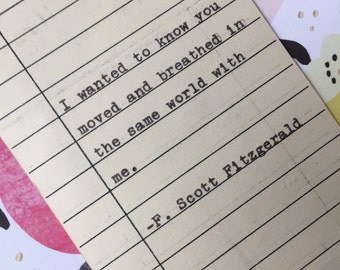 I wanted to know you
moved and breathed in
the same world with
me.
-F. Scott Fitzgerald